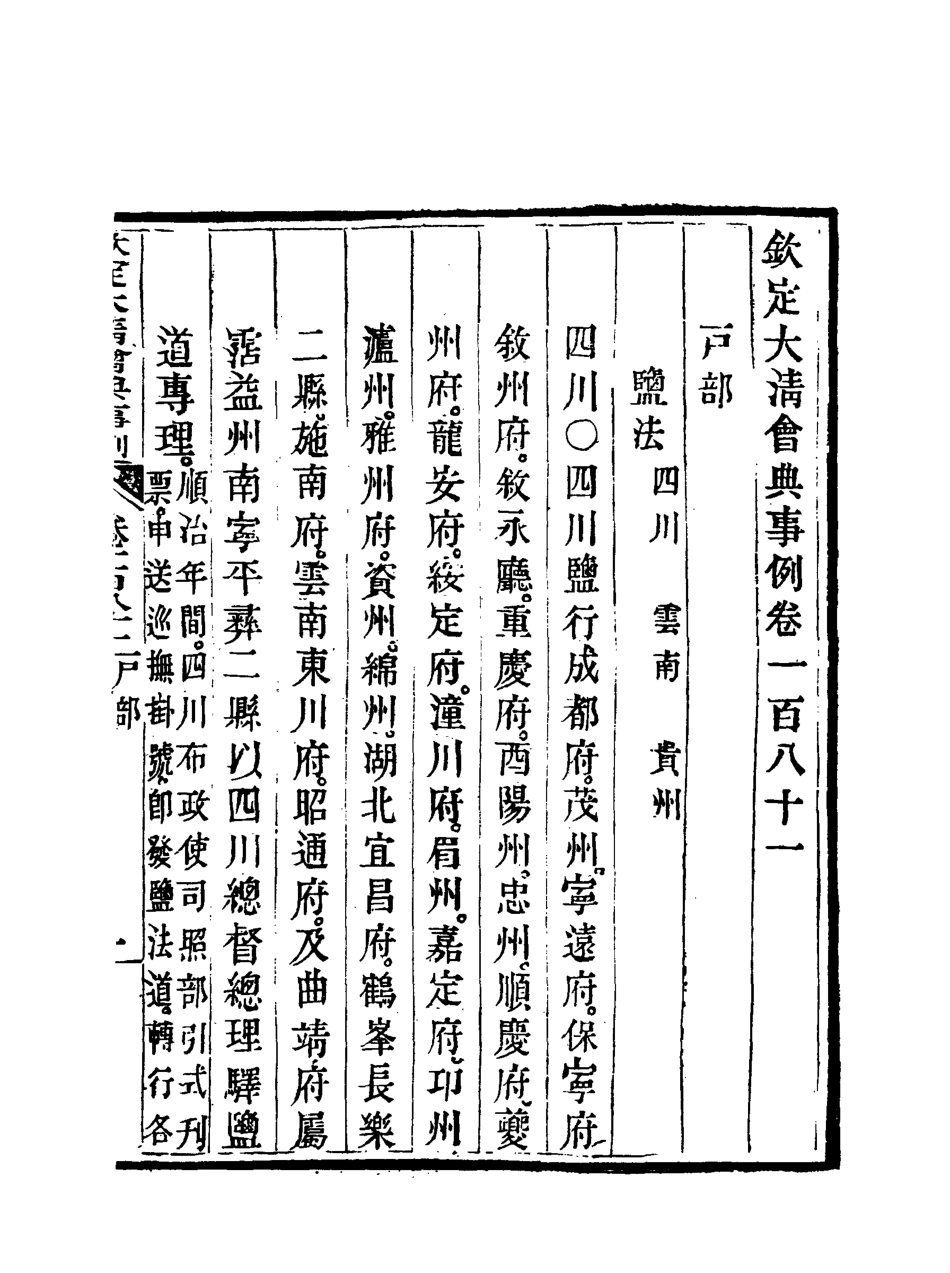 欽定大淸會典事例卷一百八十一
戸部
鹽法 四川 雲南 貴州
四川〇四川鹽行成都府。茂州。寧遠府。保寧府
敘州府。敘永廳。重慶府。酉陽州。忠州。順慶府。夔
州府。龍安府。綏定府。潼川府。眉州。嘉定府。邛州
瀘州。雅州府。資州。綿州。湖北宜昌府。鶴峯長樂
二縣。施南府。雲南東川府。昭通府。及曲靖府屬
霑益州南寧平彝二縣以四川總督總理驛鹽
道專理。順治年間。四川布政使司照部引式刋
票。申送巡撫掛號。卽發鹽法道。轉行各
欽定大淸會典事例 卷一百八十一 戸部 一